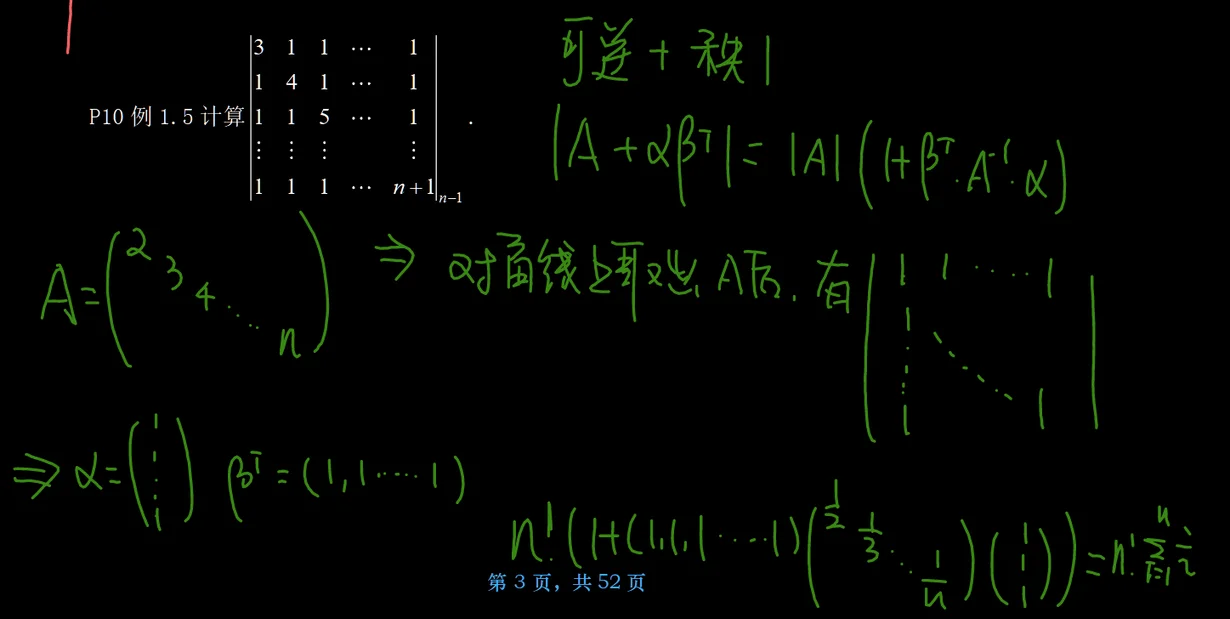 P10 例 1.5 计算
3 1 1 ⋯ 1
1 4 1 ⋯ 1
1 1 5 ⋯ 1
⋮ ⋮ ⋮ ⋮
1 1 1 ⋯ n+1
n−1
.
可逆 + 秩1
|A + αβᵀ| = |A| (1+βᵀ·A⁻¹·α)
A = (2 3 4 ⋱ n)
⇒ 对角线上可逆 A后, 有 | 1 1 ⋯ 1 1 ⋮ 1 ⋱ 1 |
⇒ α = (1 ⋮ 1) βᵀ = (1, 1 ⋯ 1)
n! (1+(1,1,1 ⋯ 1) (1/2 1/3 ⋱ 1/n) (1 1 1 1)) = n! Σ_{i=1}^{n} 1/i
第 3 页，共 52 页